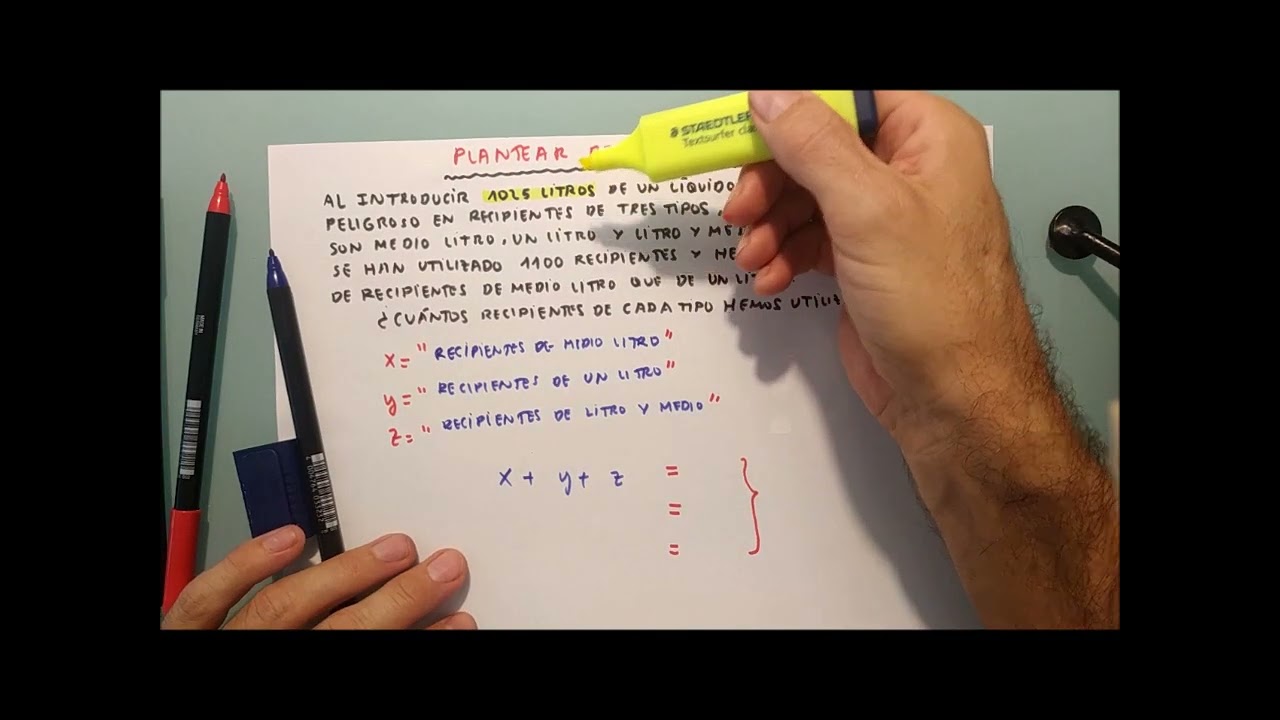 STAEDTLER
Textsurfer
PLANTEAR
AL INTRODUCIR 1025 LITROS DE UN LÍQUIDO
PELIGROSO EN RECIPIENTES DE TRES TIPOS,
SON MEDIO LITRO, UN LITRO Y LITRO Y
SE HAN UTILIZADO 1100 RECIPIENTES Y
DE RECIPIENTES DE MEDIO LITRO QUE DE UN
¿CUÁNTOS RECIPIENTES DE CADA TIPO HEMOS
X = " RECIPIENTES DE MIDIO LITRO "
y = " RECIPIENTES DE UN LITRO "
z = " RECIPIENTES DE LITRO Y MEDIO "
x + y + z = }
=
=